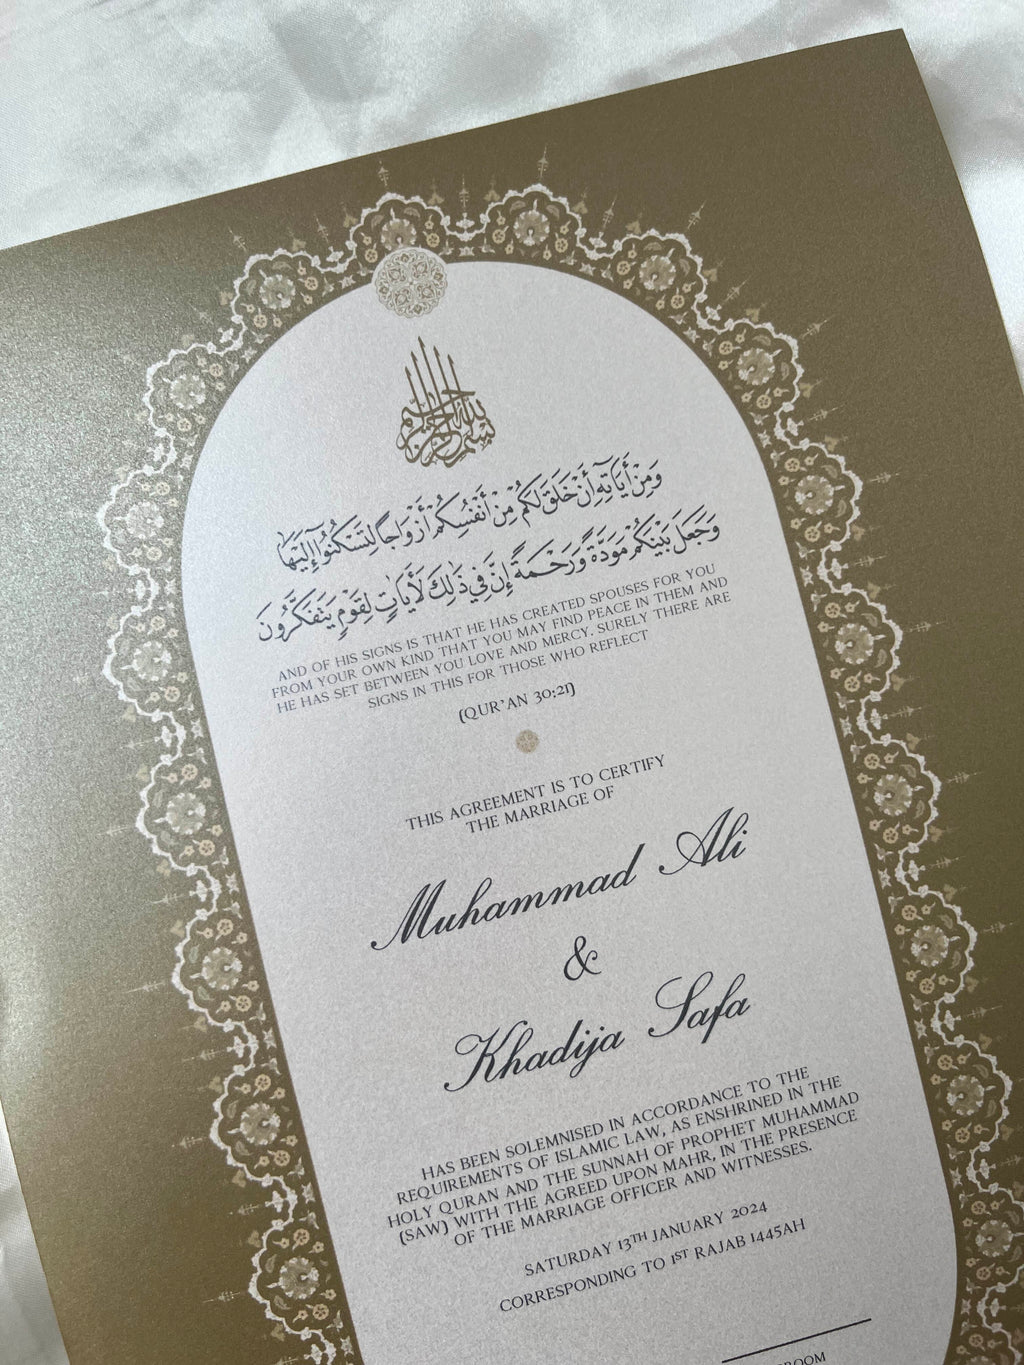 بسم الله الرحمن الرحيم
وَمِنْ أَيَاتِهِ أَنْ خَلَقَ لَكُمْ مِنْ أَنْفُسِكُمْ أَزْوَاجًا لِتَسْكُنُوا إِلَيْهَا
وَجَعَلَ بَيْنَكُمْ مَوَدَّةً وَرَحْمَةً إِنَّ فِي ذَلِكَ لَأَيَاتٍ لِقَوْمٍ يَتَفَكَّرُونَ
AND OF HIS SIGNS IS THAT HE HAS CREATED SPOUSES FOR YOU
FROM YOUR OWN KIND THAT YOU MAY FIND PEACE IN THEM AND
HE HAS SET BETWEEN YOU LOVE AND MERCY. SURELY THERE ARE
SIGNS IN THIS FOR THOSE WHO REFLECT
(QUR'AN 30:21)
THIS AGREEMENT IS TO CERTIFY
THE MARRIAGE OF
Muhammad Ali
&
Khadija Safa
HAS BEEN SOLEMNISED IN ACCORDANCE TO THE
REQUIREMENTS OF ISLAMIC LAW, AS ENSHRINED IN THE
HOLY QURAN AND THE SUNNAH OF PROPHET MUHAMMAD
(SAW) WITH THE AGREED UPON MAHR, IN THE PRESENCE
OF THE MARRIAGE OFFICER AND WITNESSES.
SATURDAY 13TH JANUARY 2024
CORRESPONDING TO 1ST RAJAB 1445AH